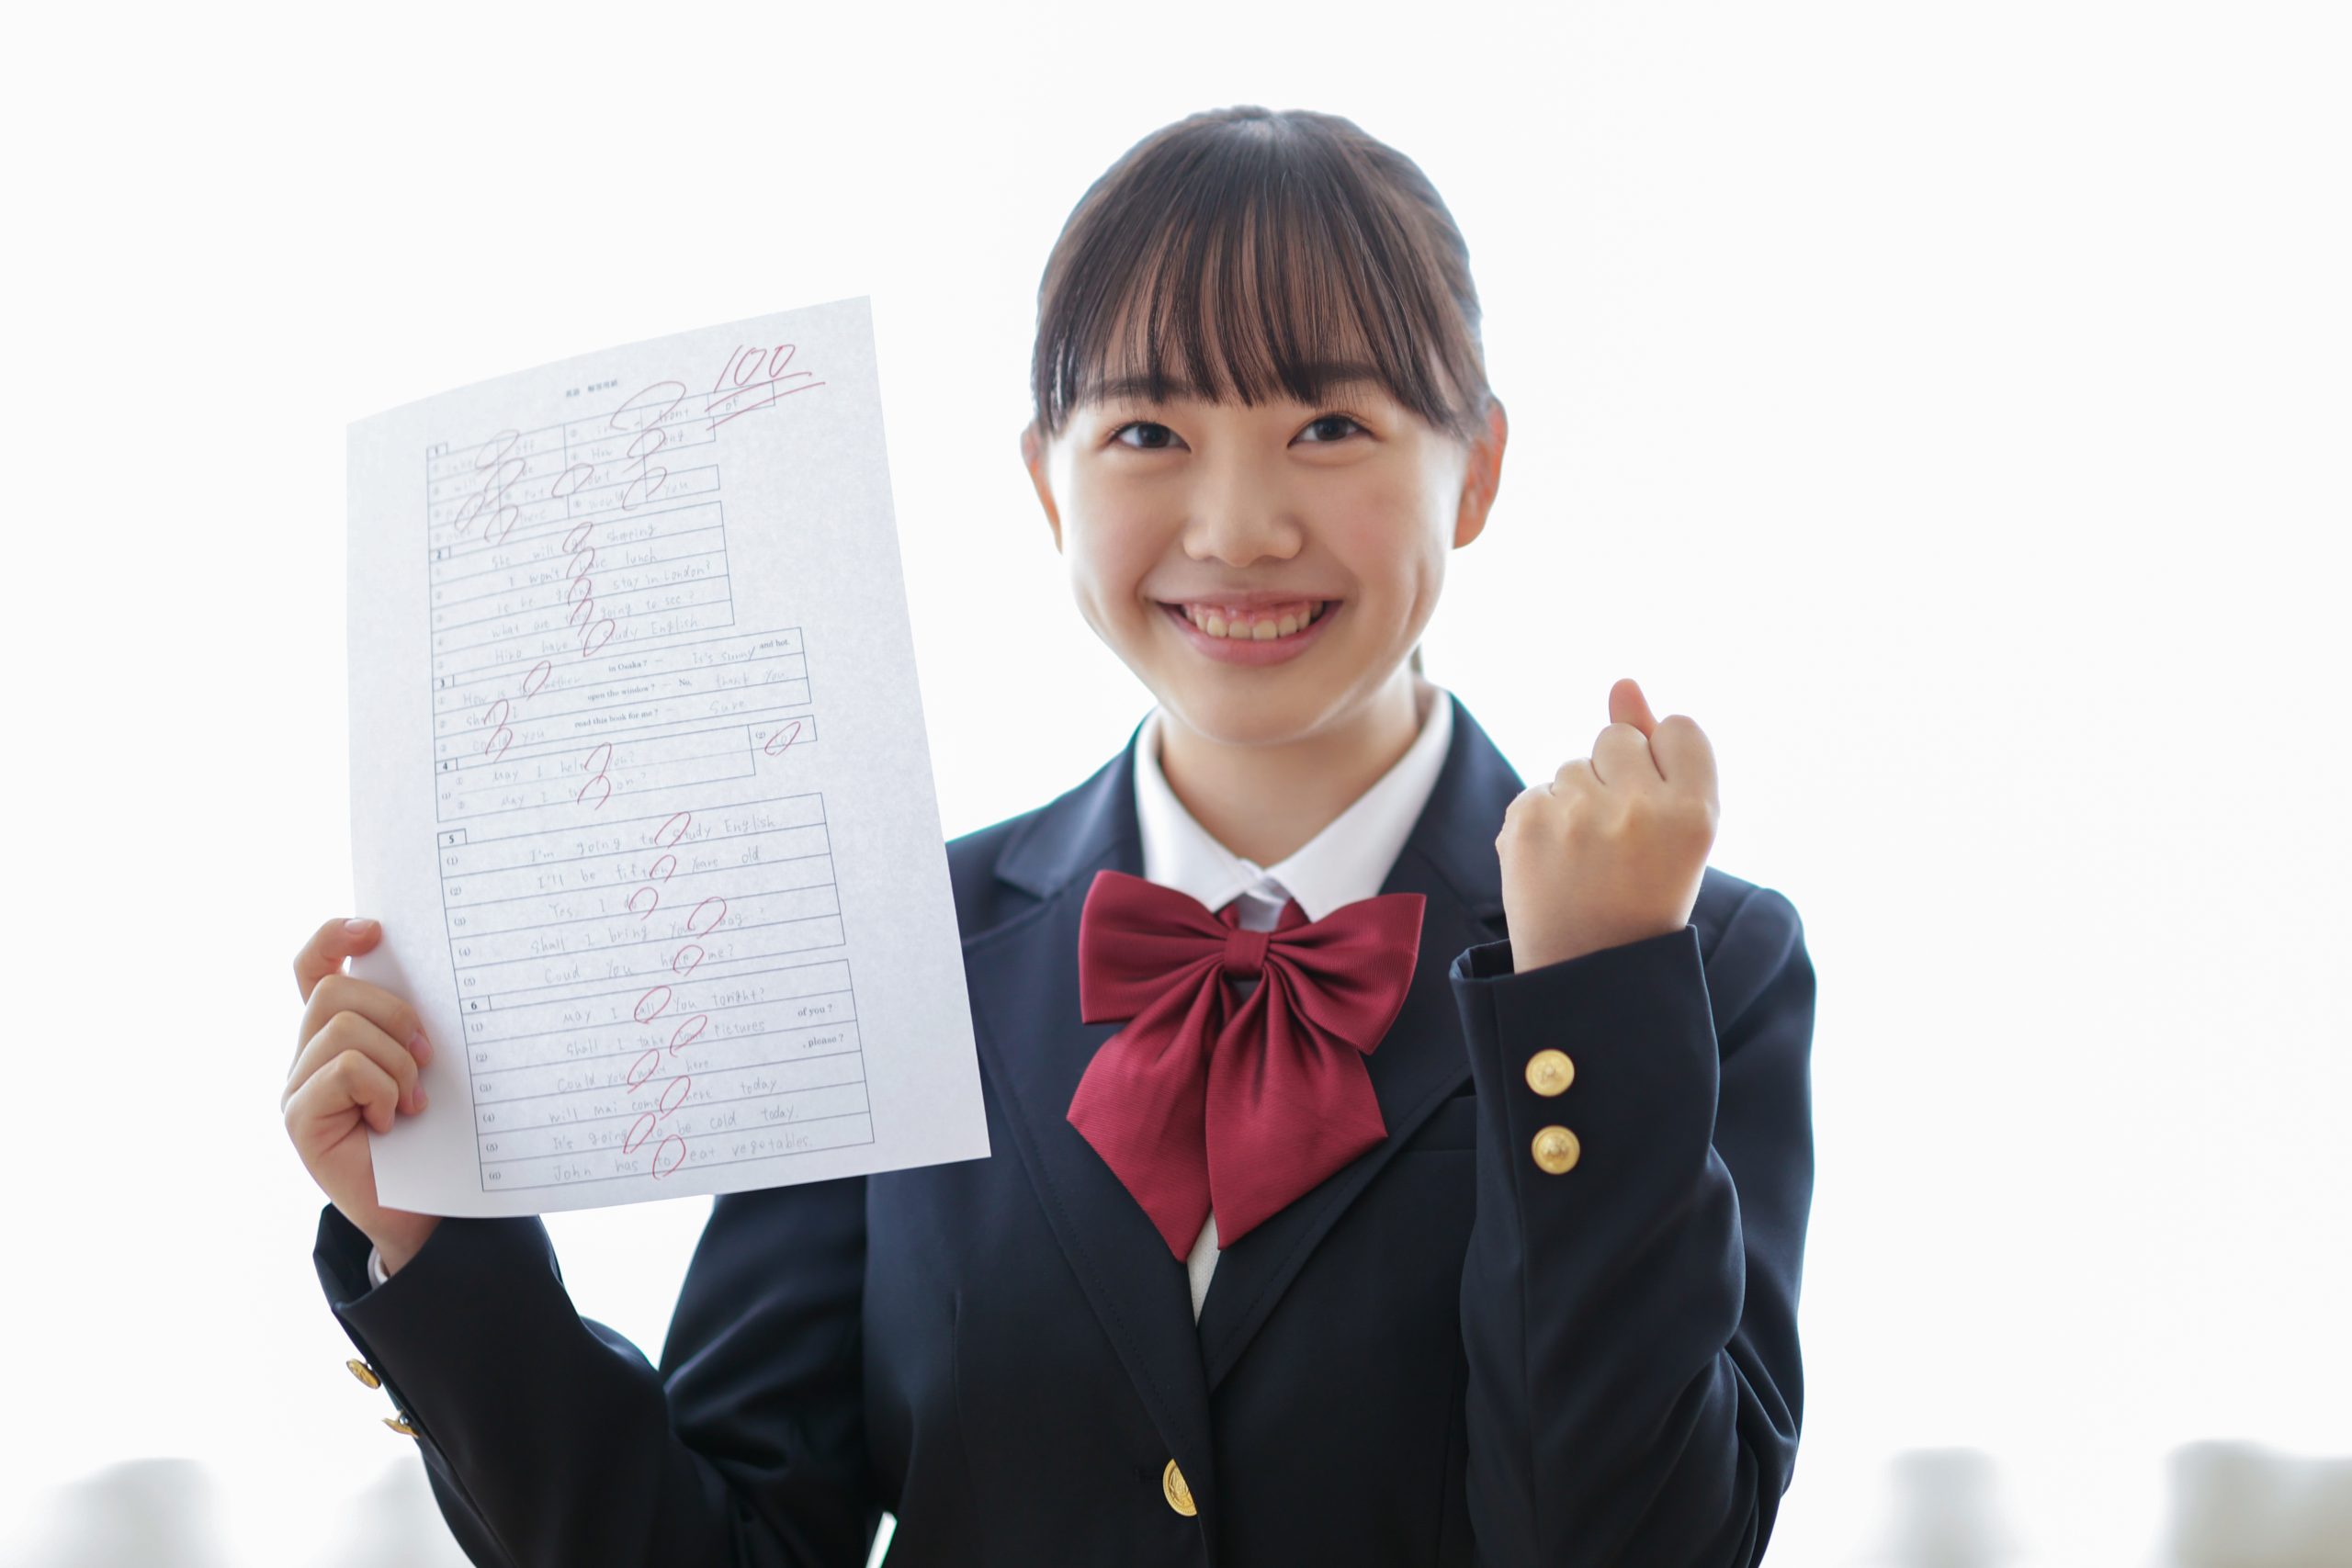 100
英語 解答用紙
1 take off in front of
will be How long
put out would you
here
2
She will go shopping
I won't have lunch
Is he going stay in London?
what are they going to see?
Hiro have study English
3
How is the wether in Osaka? — It's sunny and hot.
Shall I open the window? — No, thank you
could you read this book for me? — Sure
4
(1) ① May I help you? (2)
② May I on?
5
(1) I'm going to study English.
(2) I'll be fifteen years old
(3) Yes, I do.
(4) Shall I bring your bag?
(5) Coud you help me?
6
(1) May I call you tonight?
(2) Shall I take some pictures of you?
(3) Could you here , please?
(4) will mai come here today
(5) It's going to be cold today.
(6) John has to eat vegetables.